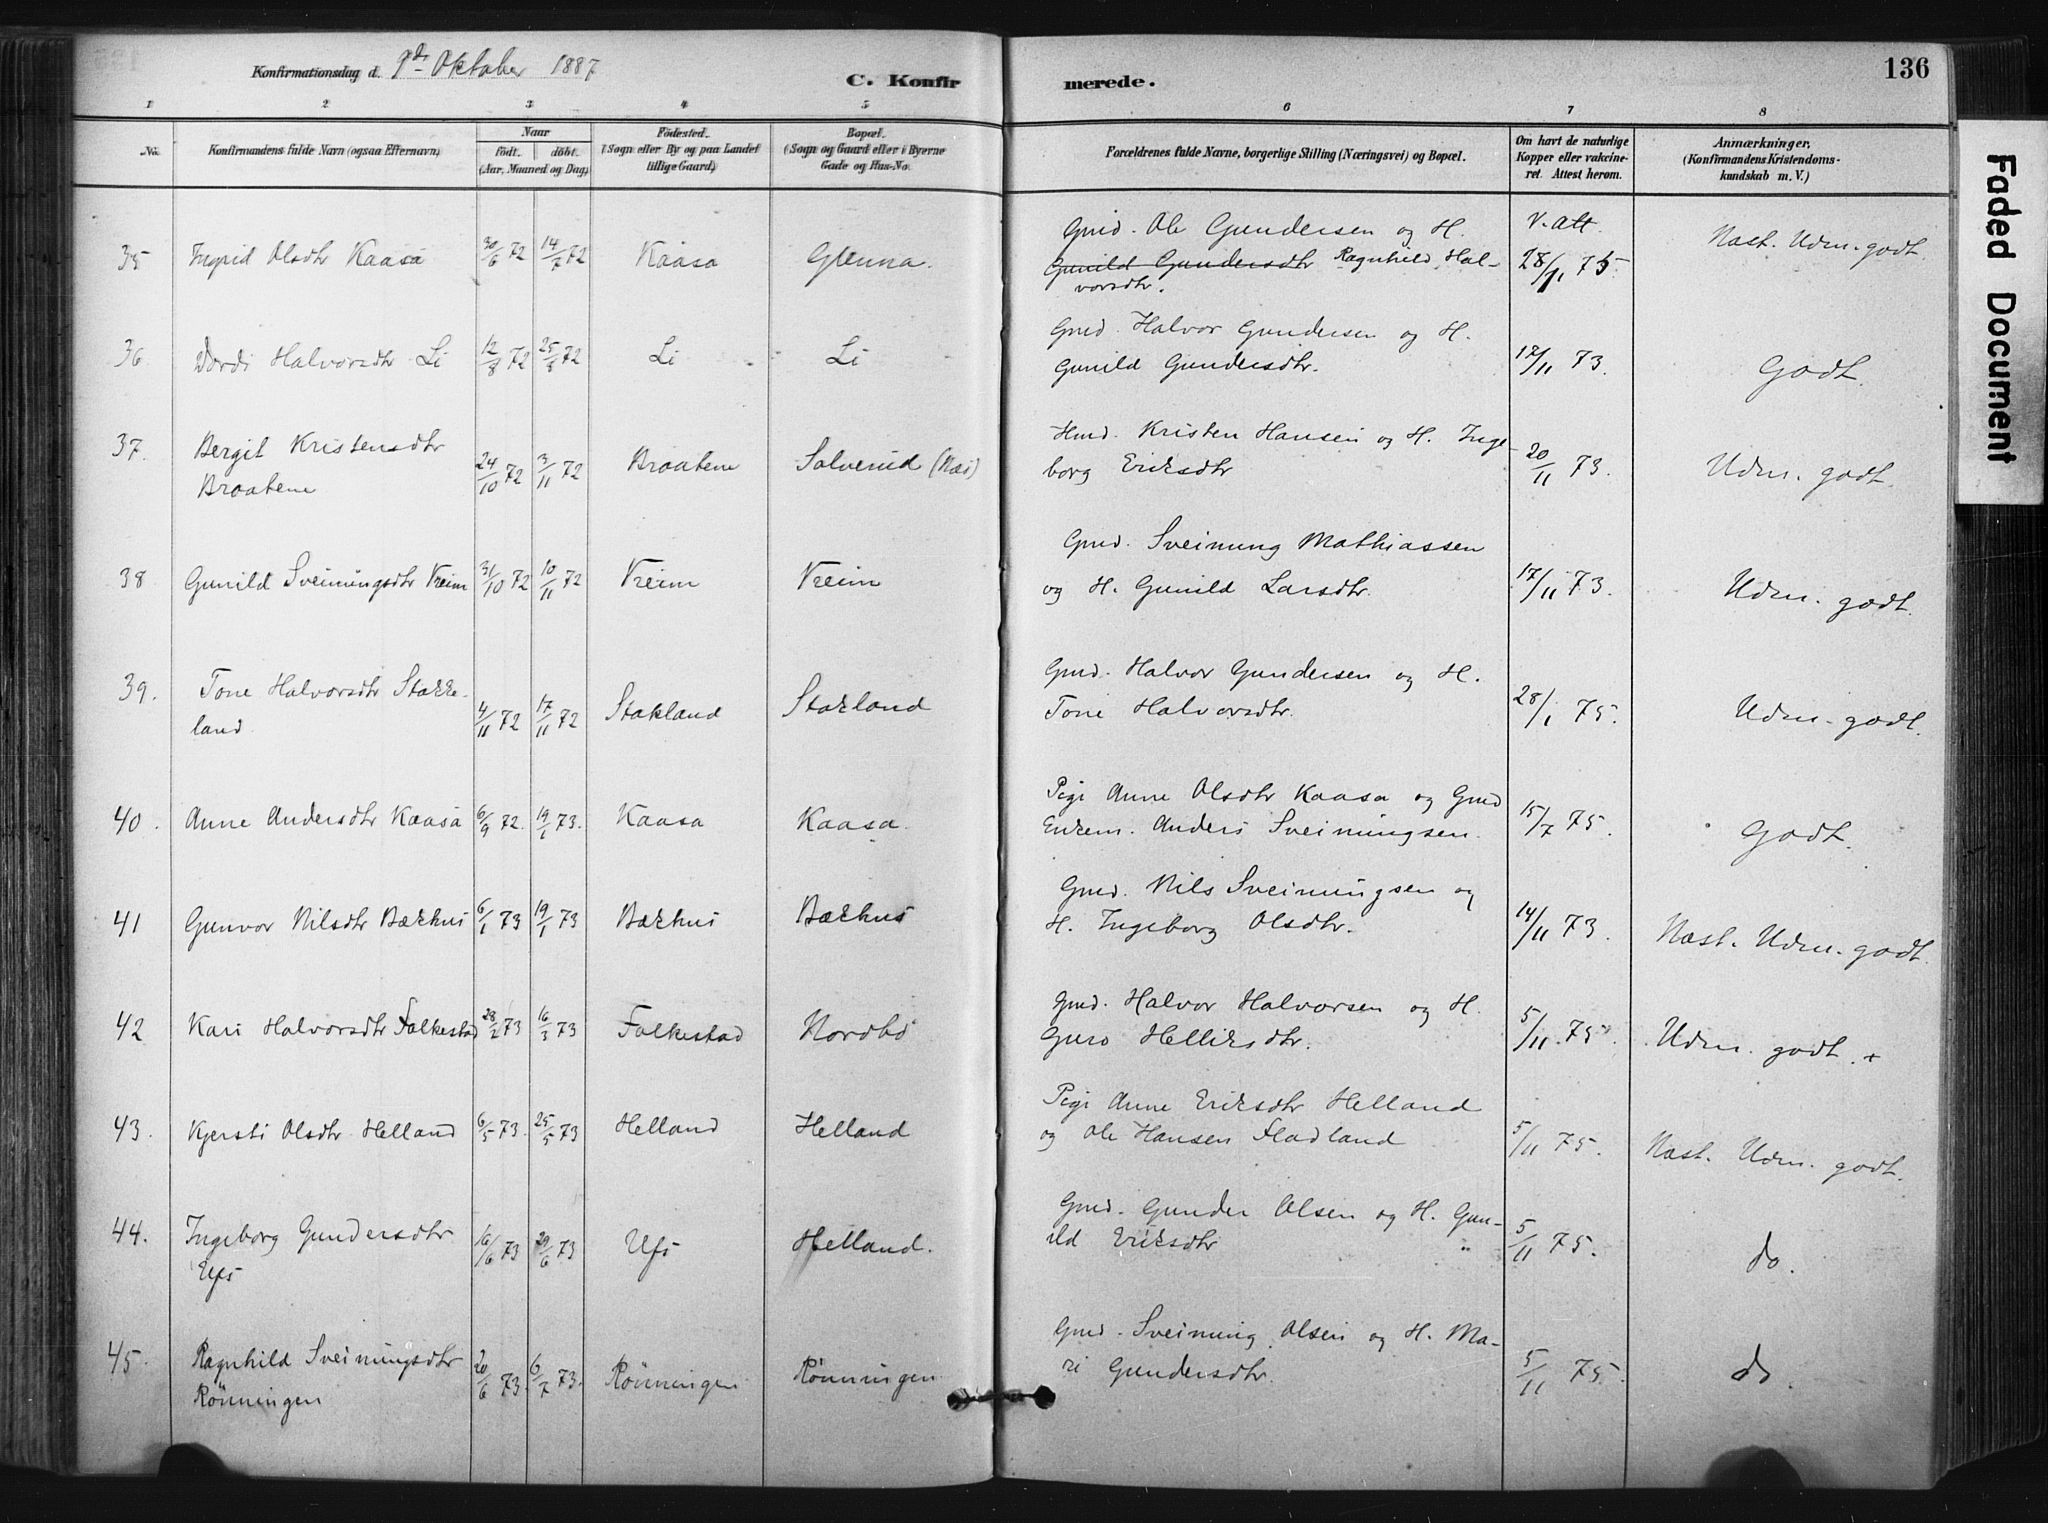 Konfirmationsdag d. 9de Oktober 1887
C. Konfirmerede.
136
1 2 3 4 5 6 7 8
No.
Konfirmandens fulde Navn (ogsaa Efternavn).
Naar
födt. döbt.
(Aar, Maaned og Dag)
Födested.
(Sogn eller By og paa Landet
tillige Gaard)
Bopæl.
(Sogn og Gaard eller i Byerne
Gade og Hus-No.
Forældrenes fulde Navne, borgerlige Stilling (Næringsvei) og Bopæl.
Om havt de naturlige
Kopper eller vakcine-
ret. Attest herom.
Anmærkninger.
(Konfirmandens Kristendoms-
kundskab m. V.)
Faded Document
35 Ingrid Olsdtr Kaasa 30/6 72 14/7 72 Kaasa Glenna. Gmd. Ole Gundersen og H. V. Att. Næst. Udm. godt.
Gunild Gundersdtr Ragnhild Hal- 28/1 75.
vorsdtr.
36. Dordi Halvorsdtr Li 12/8 72 25/8 72 Li Li Gmd. Halvor Gundersen og H.
Gunild Gundersdtr. 17/11 73. Godt.
37. Bergit Kristensdtr Hmd. Kristen Hansen og H. Inge-
Braatene 24/10 72 3/11 72 Braatene Solverud (Næs) borg Eriksdtr 20/11 73. Udm. godt.
38 Gunild Sveinungsdtr Vreim 31/10 72 10/11 72 Vreim Vreim Gmd. Sveinung Mathiassen
og H. Gunild Larsdtr. 17/11 73. Udm. godt.
39. Tone Halvorsdtr Stakke- Gmd. Halvor Gundersen og H.
land 4/11 72 17/11 72 Stakland Stakland Tone Halvorsdtr. 28/1 75. Udm. godt.
40. Anne Andersdtr Kaasa 6/9 72. 19/1 73. Kaasa Kaasa. Pige Anne Olsdtr Kaasa og Gmd
Enkem. Anders Sveinungsen. 15/7 75. Godt.
41 Gunvor Nilsdtr Bækhus 6/1 73 19/1 73 Bækhus Bækhus Gmd. Nils Sveinungsen og
H. Ingeborg Olsdtr. 14/11 73. Næst. Udm. godt.
42 Kari Halvorsdtr Folkestad 28/2 73 16/3 73 Folkestad Nordbö Gmd. Halvor Halvorsen og H.
Guro Helliksdtr. 5/11 75. Udm. godt. +
43. Kjersti Olsdtr Helland 6/5 73. 25/5 73 Helland Helland Pige Anne Eriksdtr Helland
og Ole Hansen Fladland 5/11 75. Næst. Udm. godt.
44. Ingeborg Gundersdtr Gmd. Gunder Olsen og H. Gun-
Ufs 16/6 73 29/6 73 Ufs Helland. ild Eriksdtr 5/11 75. do.
45. Ragnhild Sveinungsdtr Gmd. Sveinung Olsen og H. Ma-
Rönningen 20/6 73. 6/7 73. Rönningen Rönningen ri Gundersdtr. 5/11 75. do.